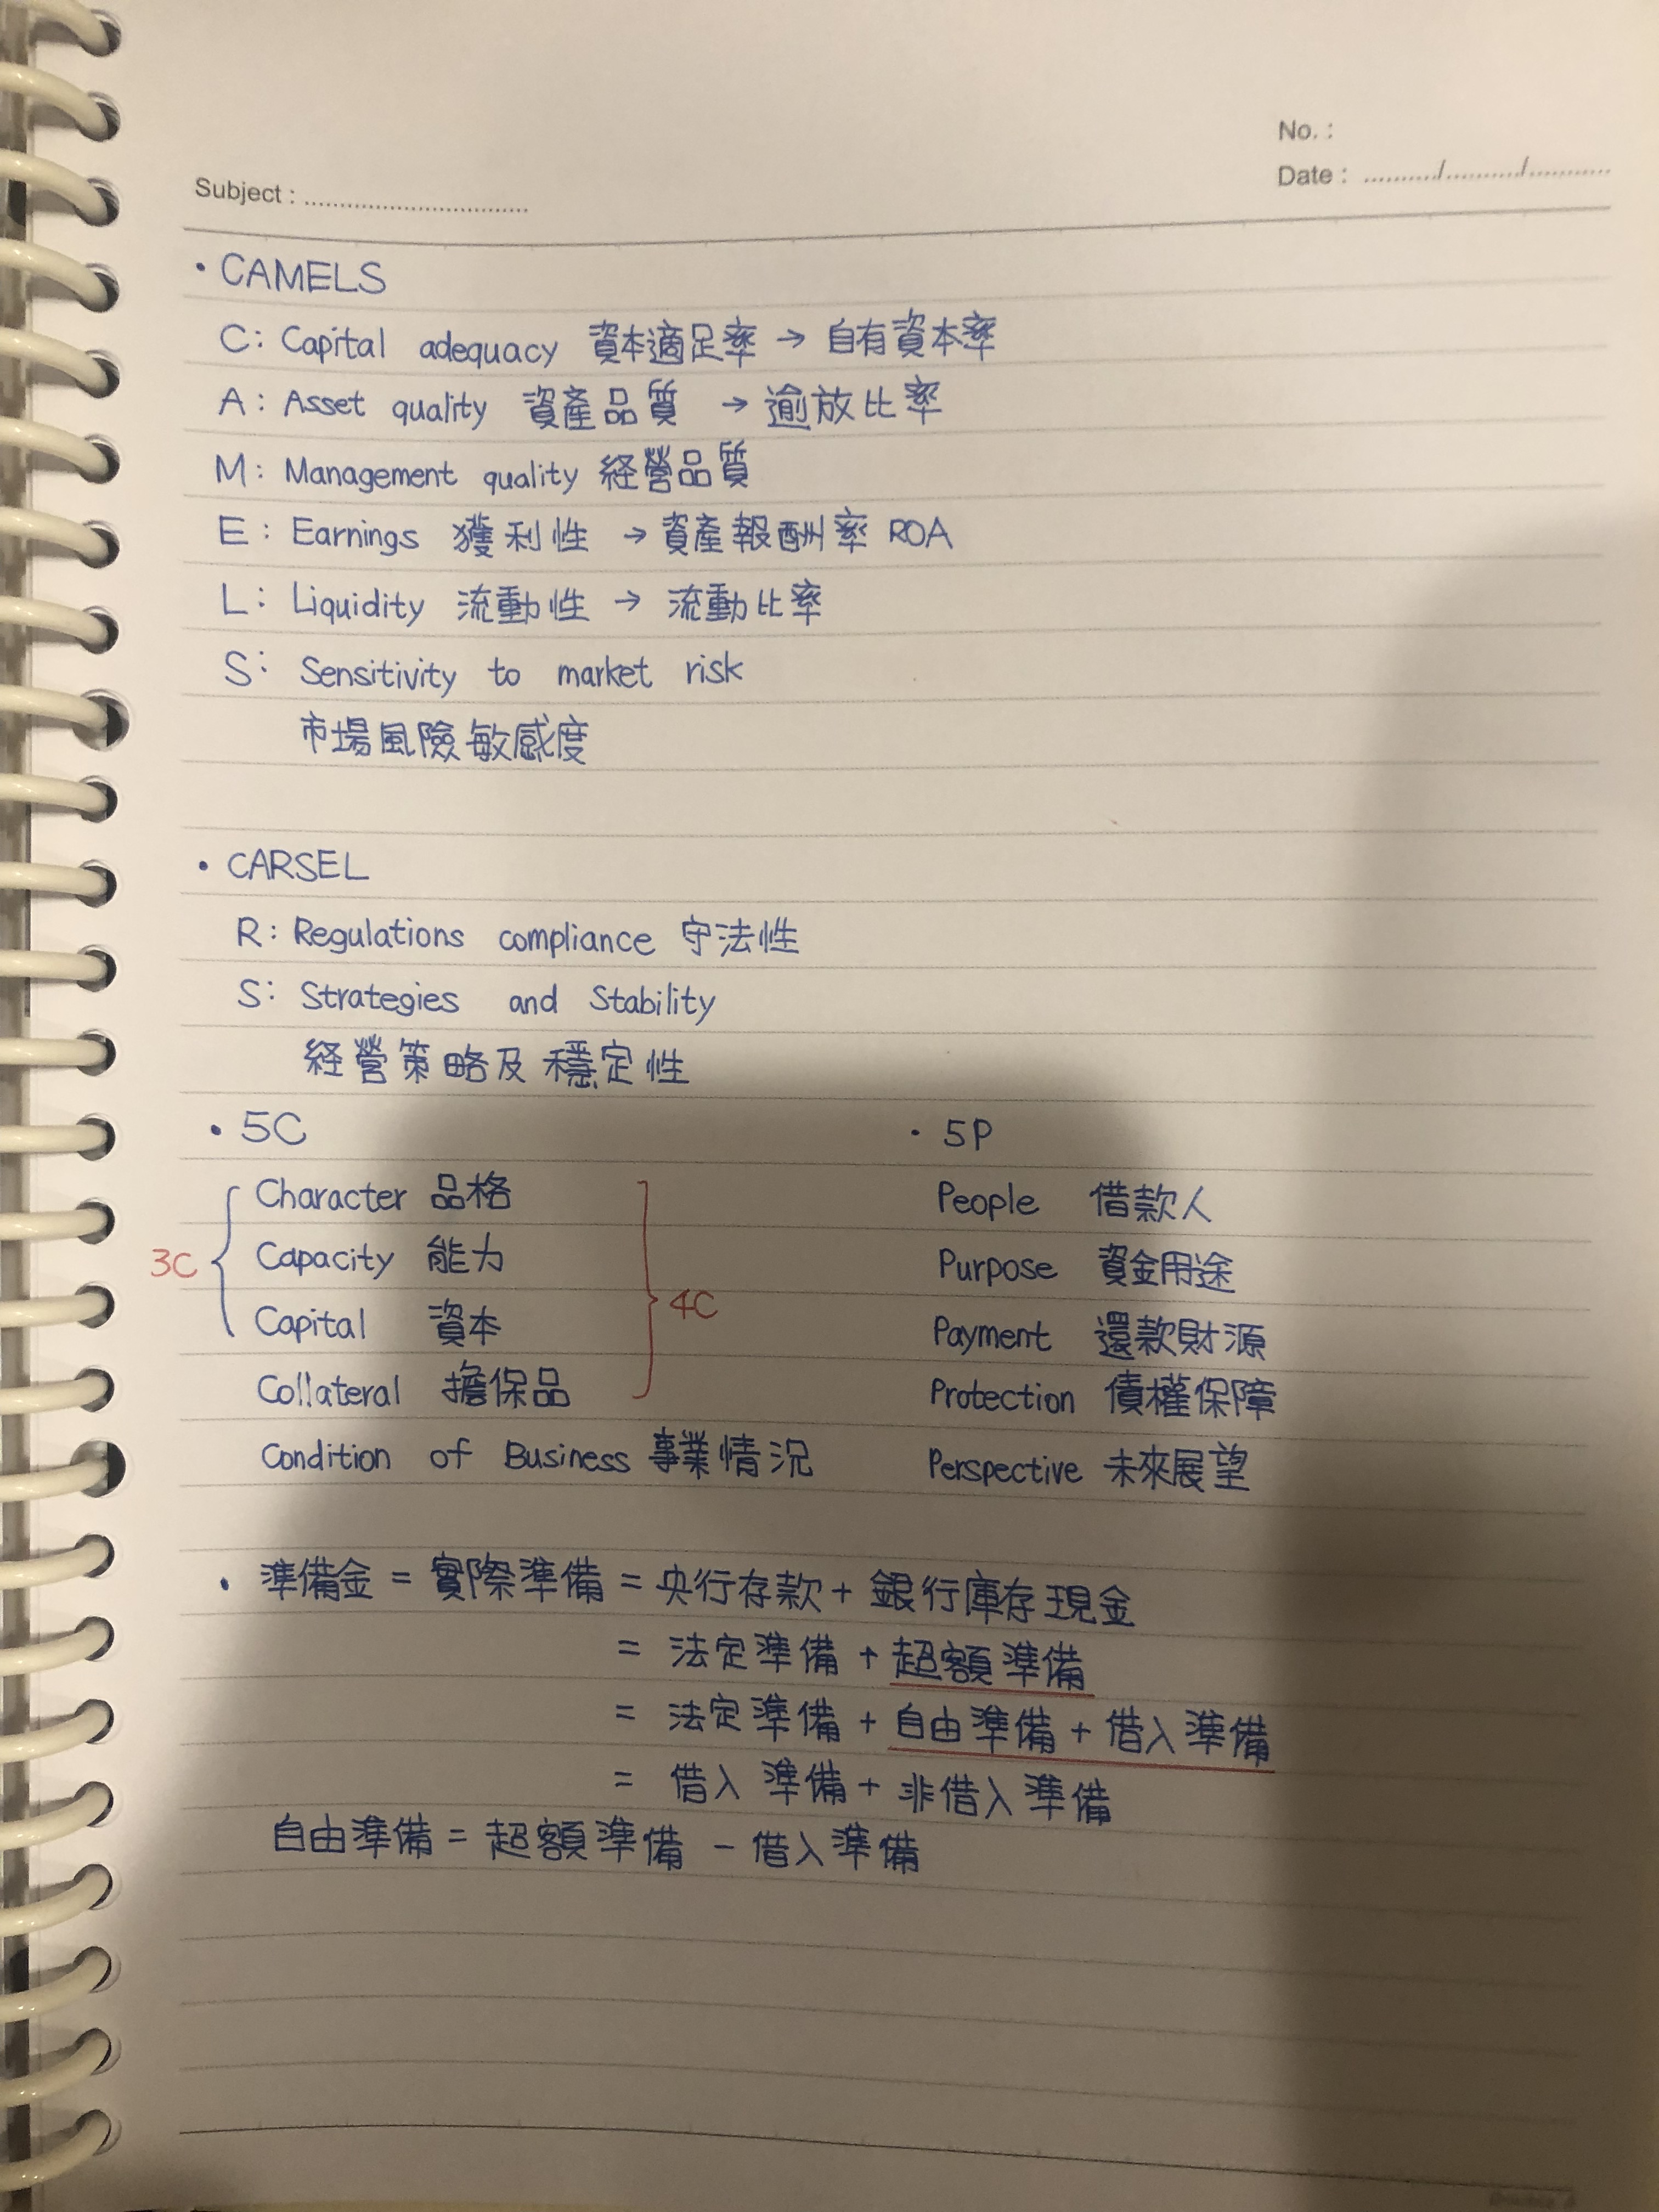 No. :
Date : ........../........../..........
Subject : ..............................
• CAMELS
C: Capital adequacy 資本適足率 → 自有資本率
A: Asset quality 資產品質 → 逾放比率
M: Management quality 経營品質
E: Earnings 獲利性 → 資產報酬率 ROA
L: Liquidity 流動性 → 流動比率
S: Sensitivity to market risk
市場風險敏感度
• CARSEL
R: Regulations compliance 守法性
S: Strategies and Stability
経營策略及穩定性
• 5C
Character 品格
Capacity 能力
3C
Capital 資本
4C
Collateral 擔保品
Condition of Business 事業情況
• 5P
People 借款人
Purpose 資金用途
Payment 還款財源
Protection 債權保障
Perspective 未來展望
• 準備金 = 實際準備 = 央行存款 + 銀行庫存現金
= 法定準備 + 超額準備
= 法定準備 + 自由準備 + 借入準備
= 借入準備 + 非借入準備
自由準備 = 超額準備 - 借入準備